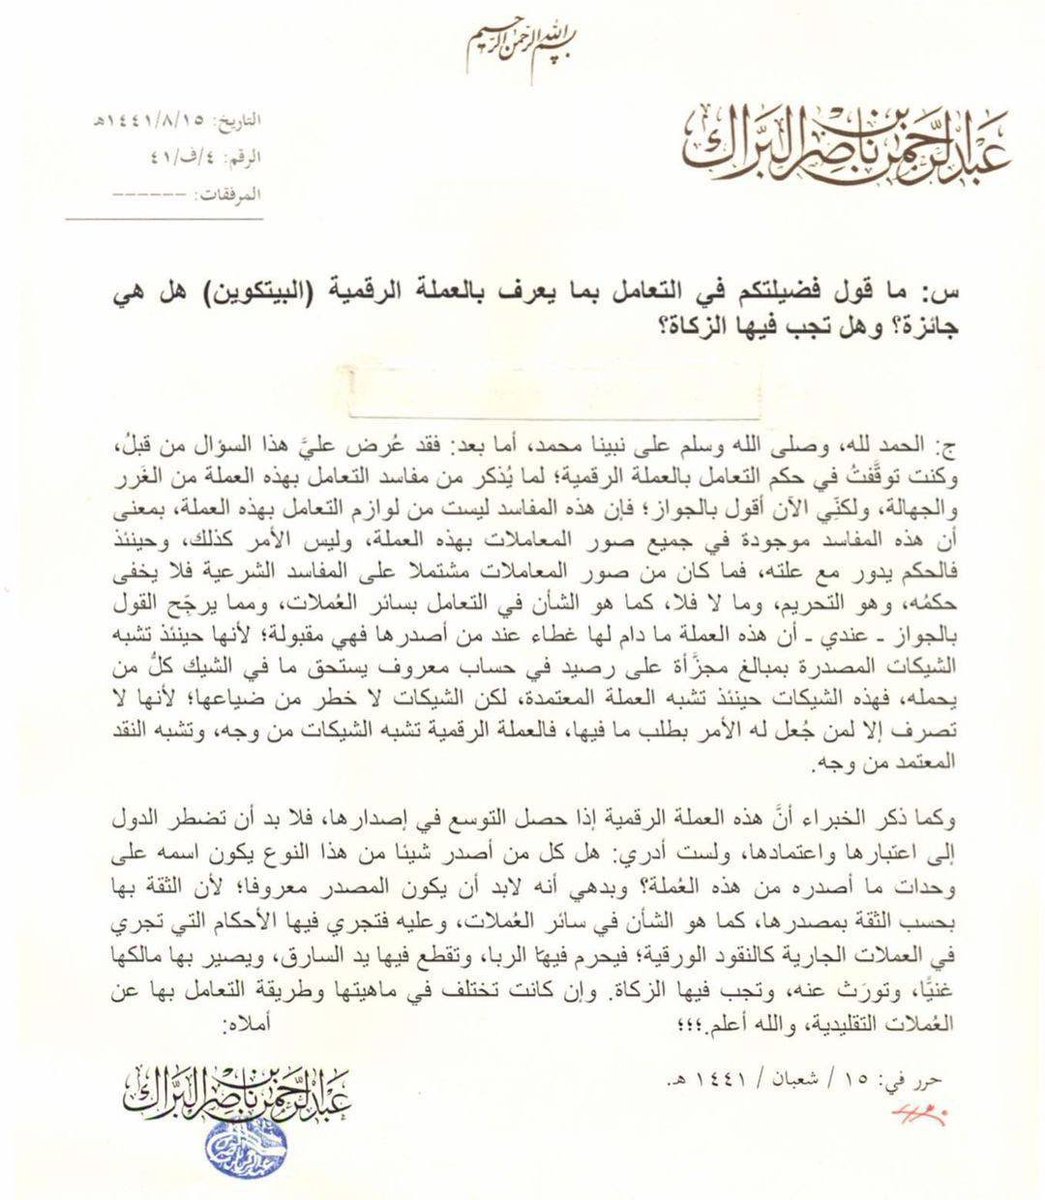 بسم الله الرحمن الرحيم
عبدالرحمن بن ناصر البراك
التاريخ: ١٤٤١/٨/١٥هـ
الرقم: ٤/ف/٤١
المرفقات: ------
س: ما قول فضيلتكم في التعامل بما يعرف بالعملة الرقمية (البيتكوين) هل هي
جائزة؟ وهل تجب فيها الزكاة؟
ج: الحمد لله، وصلى الله وسلم على نبينا محمد، أما بعد: فقد عُرض عليَّ هذا السؤال من قبلُ،
وكنت توقَّفتُ في حكم التعامل بالعملة الرقمية؛ لما يُذكر من مفاسد التعامل بهذه العملة من الغَرر
والجهالة، ولكنِّي الآن أقول بالجواز؛ فإن هذه المفاسد ليست من لوازم التعامل بهذه العملة، بمعنى
أن هذه المفاسد موجودة في جميع صور المعاملات بهذه العملة، وليس الأمر كذلك، وحينئذ
فالحكم يدور مع علته، فما كان من صور المعاملات مشتملا على المفاسد الشرعية فلا يخفى
حكمُه، وهو التحريم، وما لا فلا، كما هو الشأن في التعامل بسائر العُملات، ومما يرجِّح القول
بالجواز ـ عندي ـ أن هذه العملة ما دام لها غطاء عند من أصدرها فهي مقبولة؛ لأنها حينئذ تشبه
الشيكات المصدرة بمبالغ مجزَّأة على رصيد في حساب معروف يستحق ما في الشيك كلُّ من
يحمله، فهذه الشيكات حينئذ تشبه العملة المعتمدة، لكن الشيكات لا خطر من ضياعها؛ لأنها لا
تصرف إلا لمن جُعل له الأمر بطلب ما فيها، فالعملة الرقمية تشبه الشيكات من وجه، وتشبه النقد
المعتمد من وجه.
وكما ذكر الخبراء أنَّ هذه العملة الرقمية إذا حصل التوسع في إصدارها، فلا بد أن تضطر الدول
إلى اعتبارها واعتمادها، ولست أدري: هل كل من أصدر شيئا من هذا النوع يكون اسمه على
وحدات ما أصدره من هذه العُملة؟ وبدهي أنه لابد أن يكون المصدر معروفا؛ لأن الثقة بها
بحسب الثقة بمصدرها، كما هو الشأن في سائر العُملات، وعليه فتجري فيها الأحكام التي تجري
في العملات الجارية كالنقود الورقية؛ فيحرم فيها الربا، وتقطع فيها يد السارق، ويصير بها مالكها
غنيًّا، وتورَث عنه، وتجب فيها الزكاة. وإن كانت تختلف في ماهيتها وطريقة التعامل بها عن
العُملات التقليدية، والله أعلم.؛؛؛ أملاه:
عبدالرحمن بن ناصر البراك
حرر في: ١٥ / شعبان / ١٤٤١ هـ.